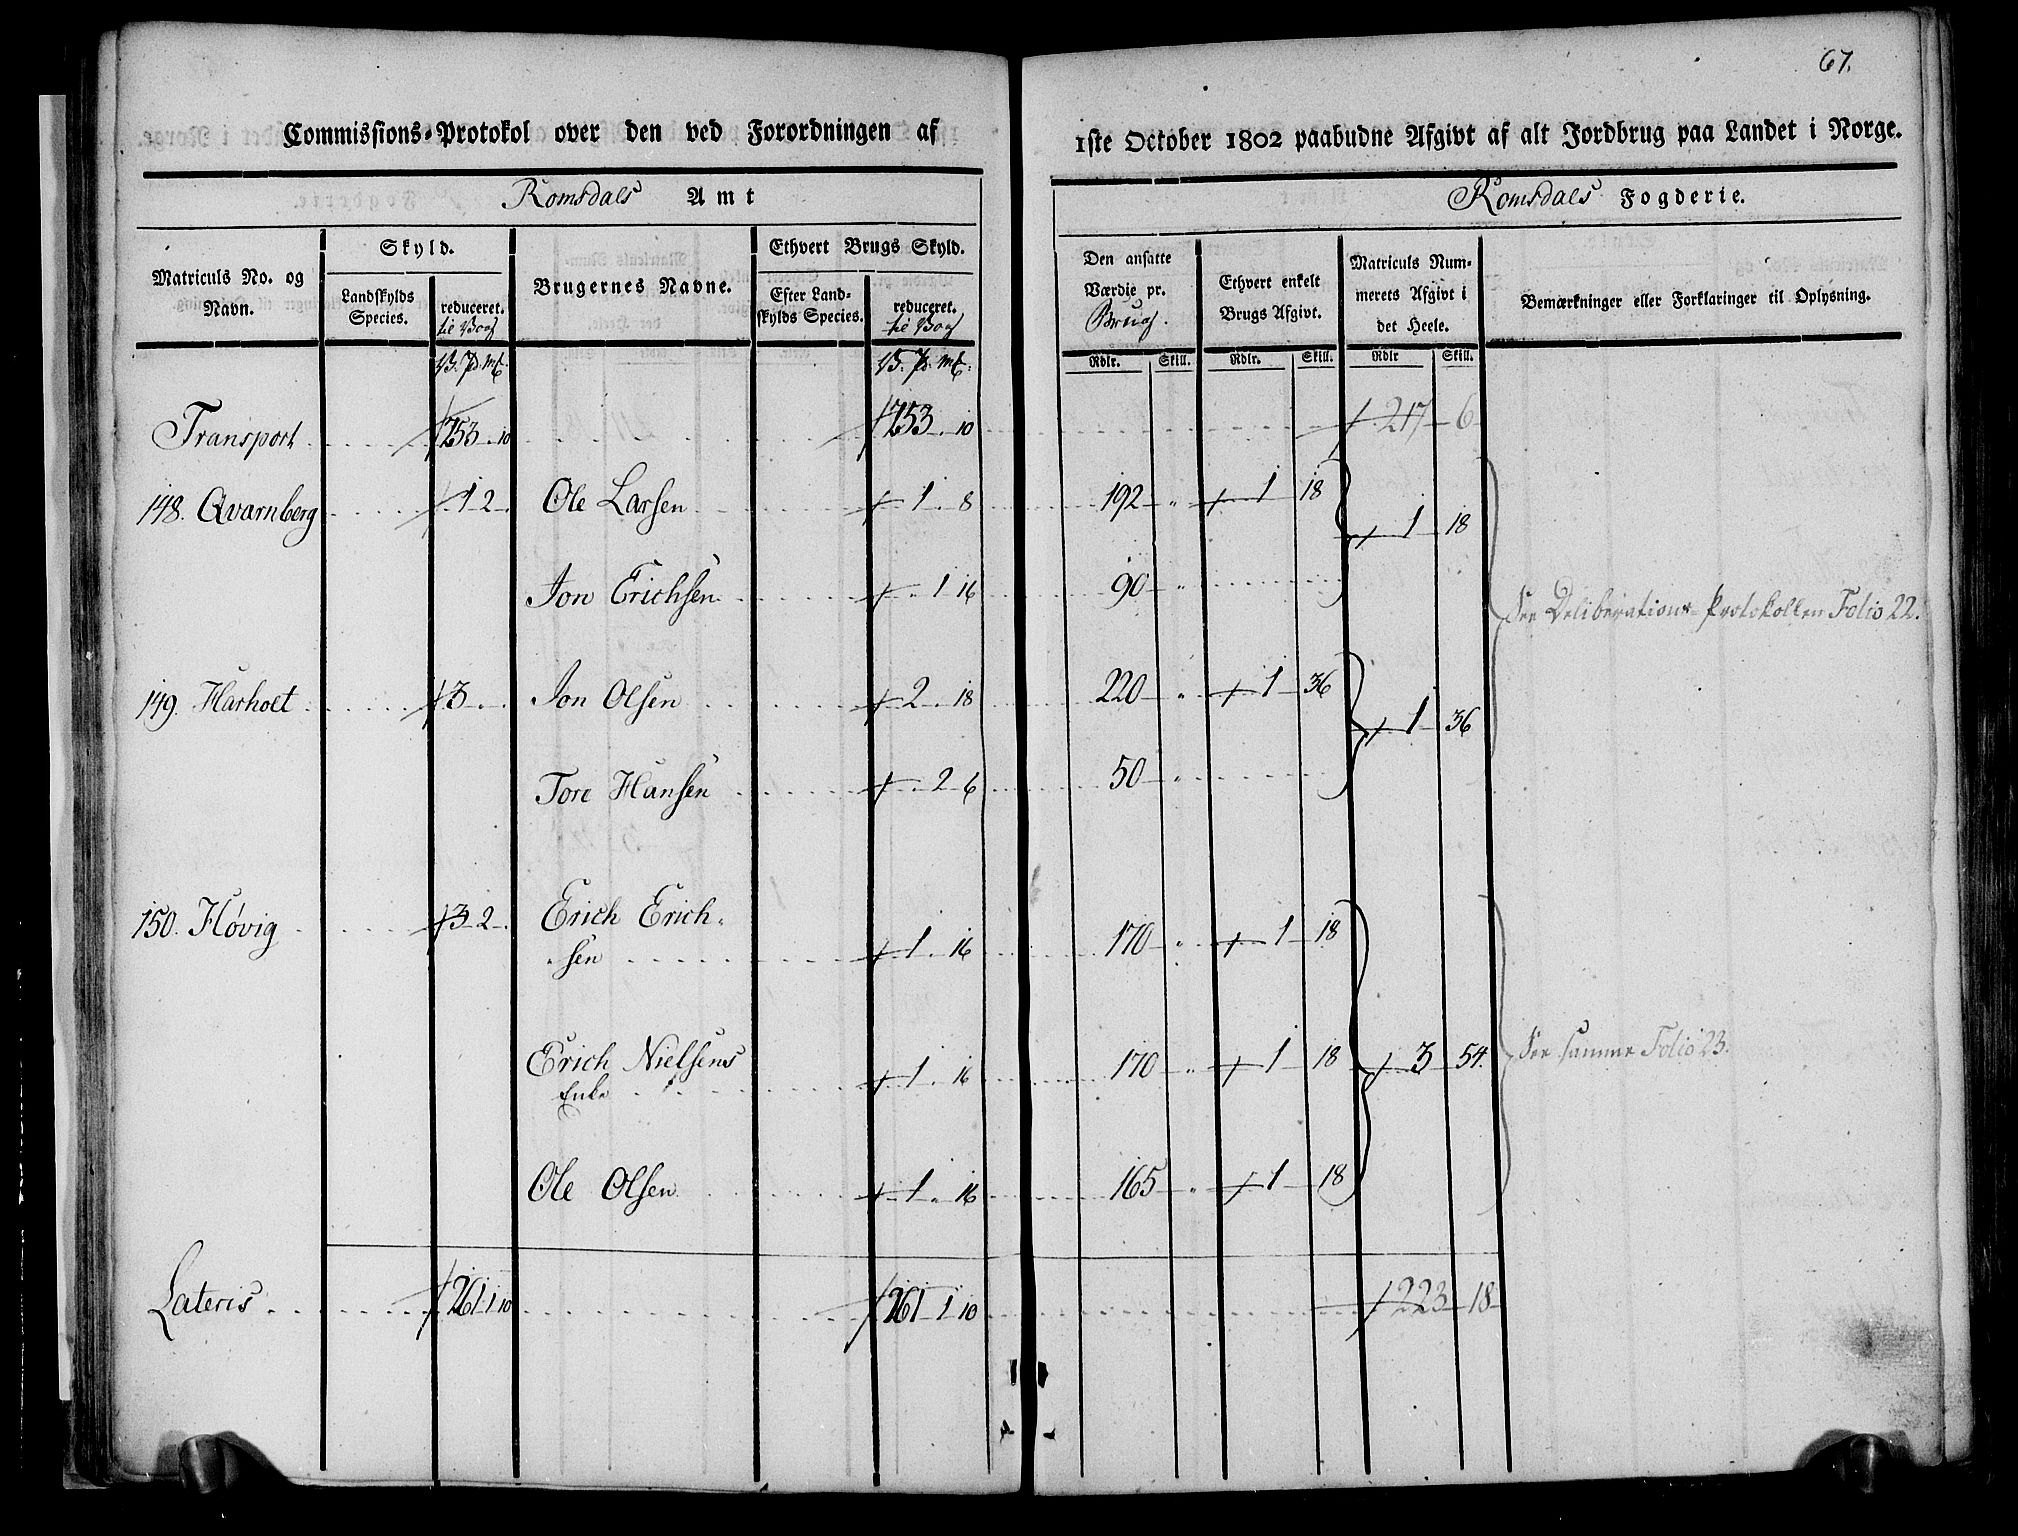 67.
Commissions-Protokol over den ved Forordningen af 1ste October 1802 paabudne Afgivt af alt Jordbrug paa Landet i Norge.
Romsdals Amt
Romsdals Fogderie.
Matriculs No. og Navn.
Skyld.
Landskylds Species.
reduceret.
Brugernes Navne.
Ethvert Brugs Skyld.
Efter Landskylds Species.
reduceret.
Den ansatte Værdie pr. Brug.
Ethvert enkelt Brugs Afgivt.
Matriculs Nummerets Afgivt i det Heele.
Bemærkninger eller Forklaringer til Oplysning.
Rdlr. Skill. Rdlr. Skill. Rdlr Skill.
Transport 253 " 10 253 " 10 217 6
148. Qvarnberg 1 2 " Ole Larsen 1 " 8 192 " 1 18 1 18
Jon Erichsen " 1 16 90 "
See Deliberations-Protokollen Folio 22.
149. Harholt 3 " " Jon Olsen 2 " 18 220 " 1 36 1 36
Tore Hansen " 2 6 50 "
150. Høvig 3 2 " Erich Erich-
sen 1 " 16 170 " 1 18
Erich Nielsens
Enke 1 " 16 170 " 1 18 3 54. See samme Folio 23.
Ole Olsen 1 " 16 165 " 1 18
Lateris 261 1 10 261 1 10 223 18